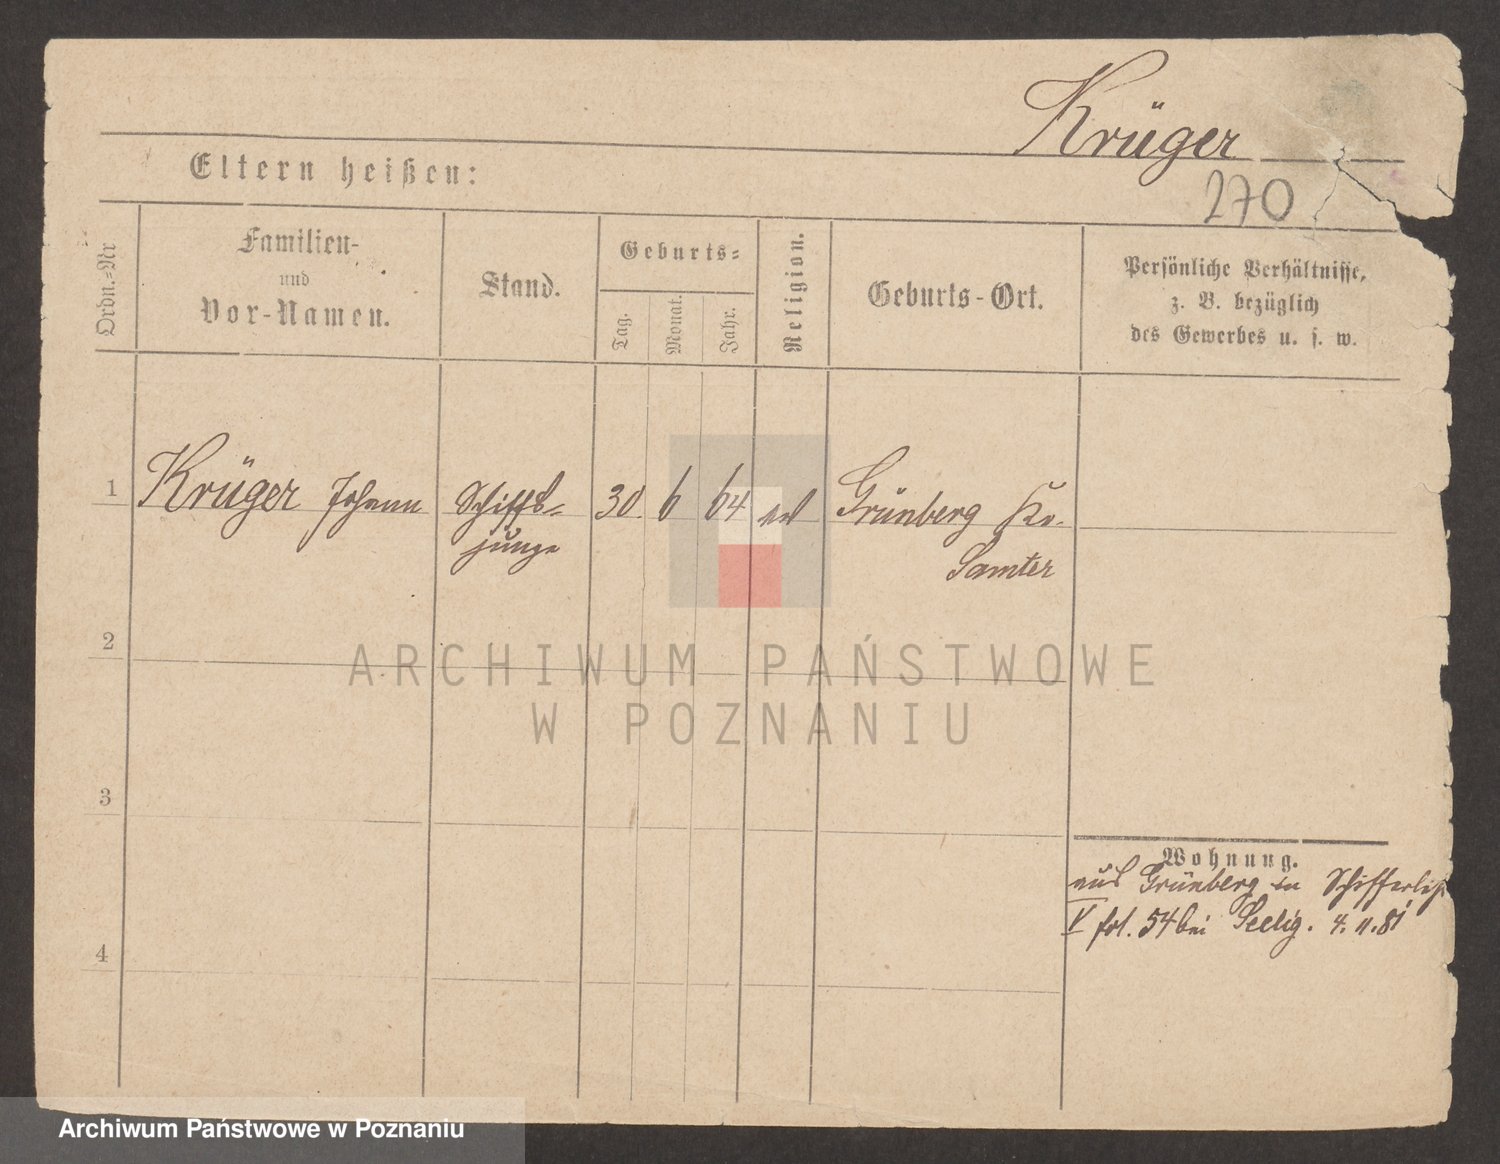 Krüger
Eltern heißen:
270
Ordn.-Nr
Familien-
und
Vor-Namen.
Stand.
Geburts-
Tag.
Monat.
Jahr.
Religion.
Geburts-Ort.
Persönliche Verhältnisse,
z. B. bezüglich
des Gewerbes u. s. w.
1
Krüger Johann
Schiffs-
junge
30. 6 64
Grünberg Kr.
Samter
2
ARCHIWUM PAŃSTWOWE
W POZNANIU
3
Wohnung.
aus Grünberg in
V fol. 54 bei Seelig. 4.11.81
4
Archiwum Państwowe w Poznaniu